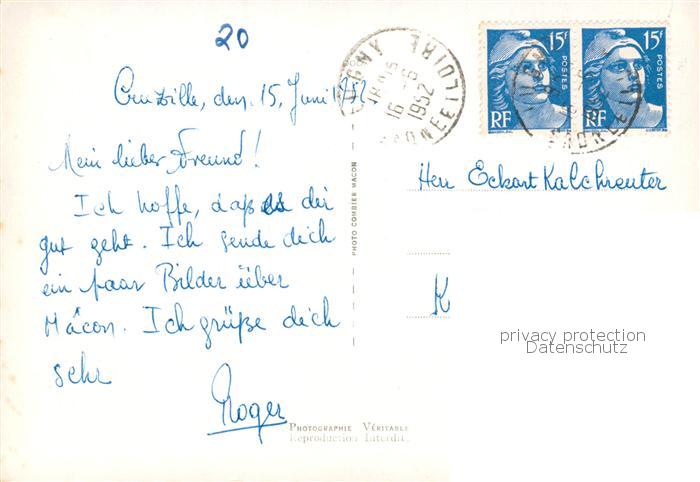 20
Cruzille, den 15. Juni 1952
Mein lieber Freund!
Ich hoffe, daß es dir
gut geht. Ich sende dich
ein paar Bilder über
Mâcon. Ich grüße dich
sehr
Roger
PHOTOGRAPHIE VÉRITABLE
Reproduction Interdite
PHOTO COMBIER MACON
16 -6
1952
SAONE ET LOIRE
15F
POSTES
RF
15F
POSTES
RF
Herr Eckart Kalchreuter
K
privacy protection
Datenschutz